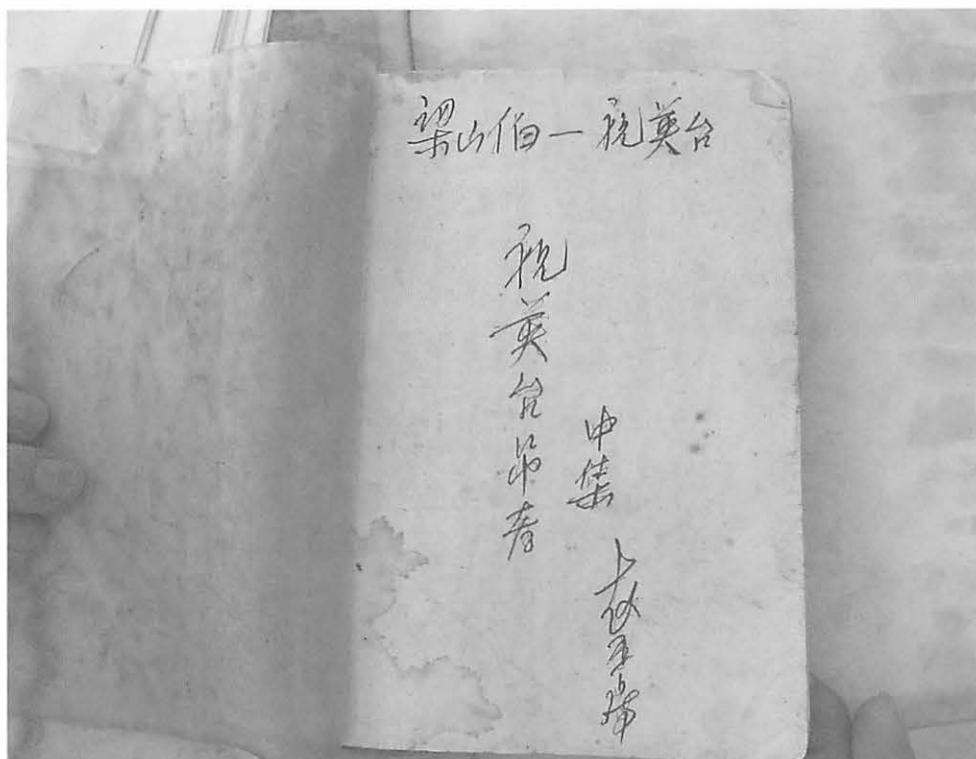 梁山伯一祝英台
祝英台吊孝
中集